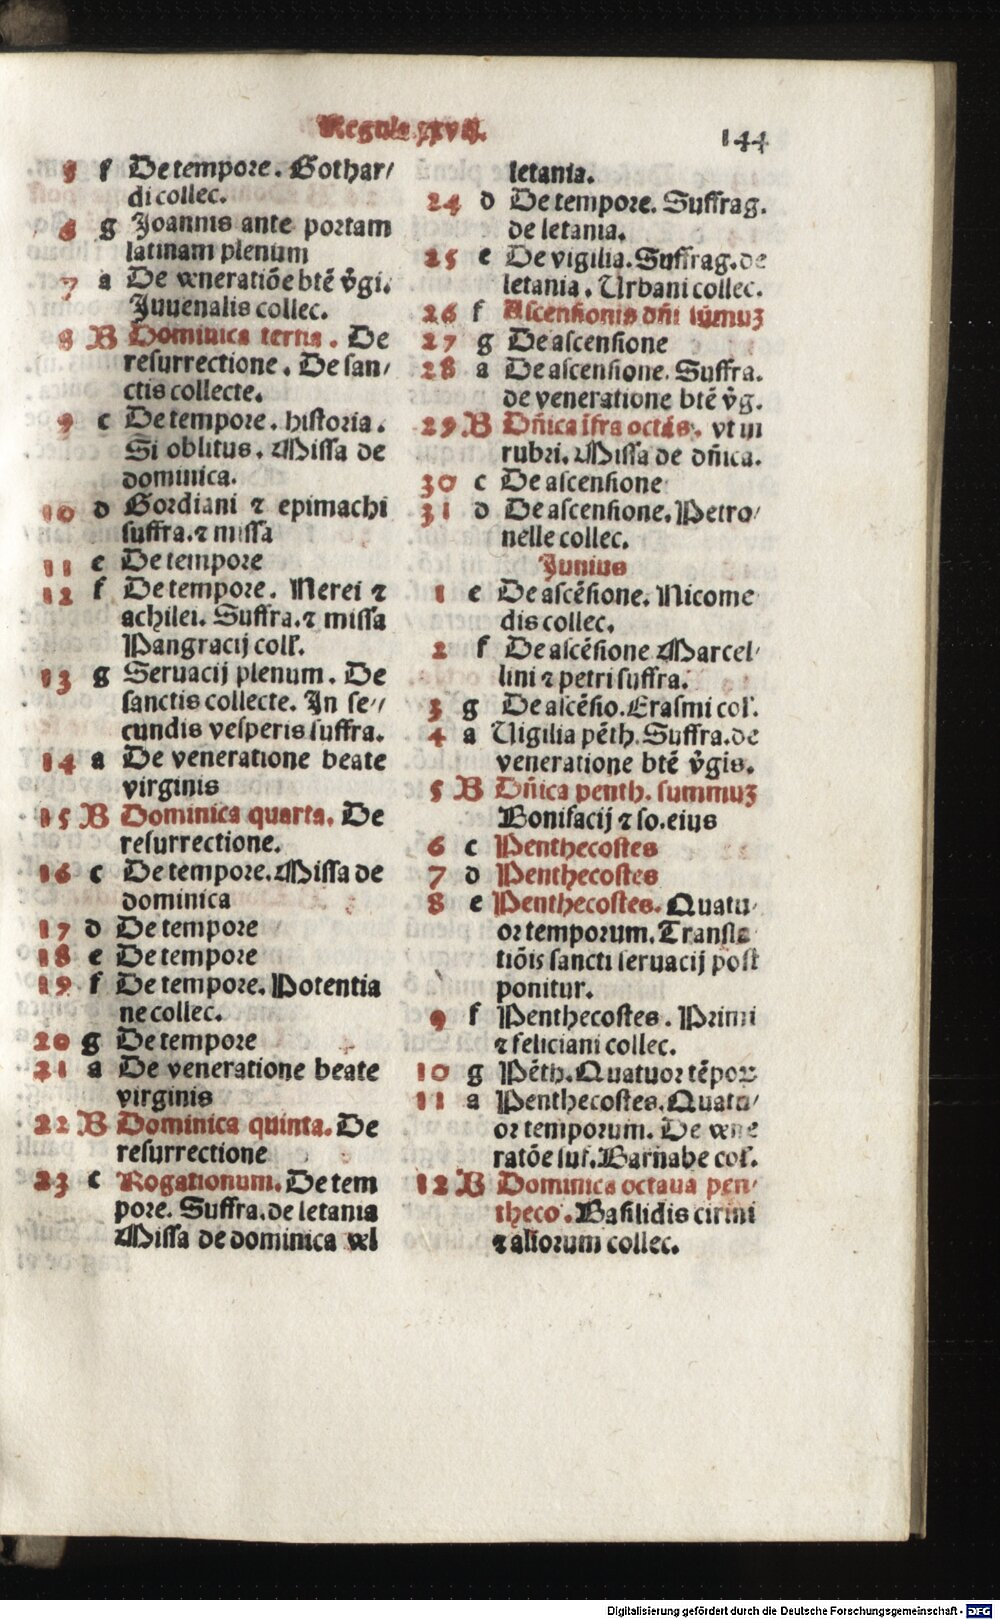 Regula xxvij.
144
5 f De tempore. Gothar/
di collec.
6 g Joannis ante portam
latinam plenum
7 a De veneratiōe btē v̄gi.
Juuenalis collec.
8 B Dominica tertia. De
resurrectione. De san/
ctis collecte.
9 c De tempore. historia.
Si oblitus. Missa de
dominica.
10 d Gordiani ⁊ epimachi
suffra. ⁊ missa
11 e De tempore
12 f De tempore. Nerei ⁊
achilei. Suffra. ⁊ missa
Pangracij coll.
13 g Seruacij plenum. De
sanctis collecte. In se//
cundis vesperis suffra.
14 a De veneratione beate
virginis
15 B Dominica quarta. De
resurrectione.
16 c De tempore. Missa de
dominica
17 d De tempore
18 e De tempore
19 f De tempore. Potentia
ne collec.
20 g De tempore
21 a De veneratione beate
virginis
22 B Dominica quinta. De
resurrectione
23 c Rogationum. De tem
pore. Suffra. de letania
Missa de dominica vel
letania.
24 d De tempore. Suffrag.
de letania.
25 e De vigilia. Suffrag. de
letania. Urbani collec.
26 f Ascensionis dn̄i sūmuʒ
27 g De ascensione
28 a De ascensione. Suffra.
de veneratione btē v̄g.
29 B Dn̄ica īfra octās. vt in
rubri. Missa de dn̄ica.
30 c De ascensione
31 d De ascensione. Petro/
nelle collec.
Junius
1 e De ascēsione. Nicome
dis collec.
2 f De ascēsione Marcel/
lini ⁊ petri suffra.
3 g De ascēsio. Erasmi col.
4 a Uigilia pēth. Suffra. de
veneratione btē v̄gis.
5 B Dn̄ica penth. summuʒ
Bonifacij ⁊ so. eius
6 c Penthecostes
7 d Penthecostes
8 e Penthecostes. Quatu/
or temporum. Transla
tiōis sancti seruacij post
ponitur.
9 f Penthecostes. Primi
⁊ feliciani collec.
10 g Pēth. Quatuor tēpor
11 a Penthecostes. Quatu/
or temporum. De vene
ratōe suf. Barnabe col.
12 B Dominica octaua pen/
theco. Basilidis cirini
⁊ aliorum collec.
Digitalisierung gefördert durch die Deutsche Forschungsgemeinschaft - DFG